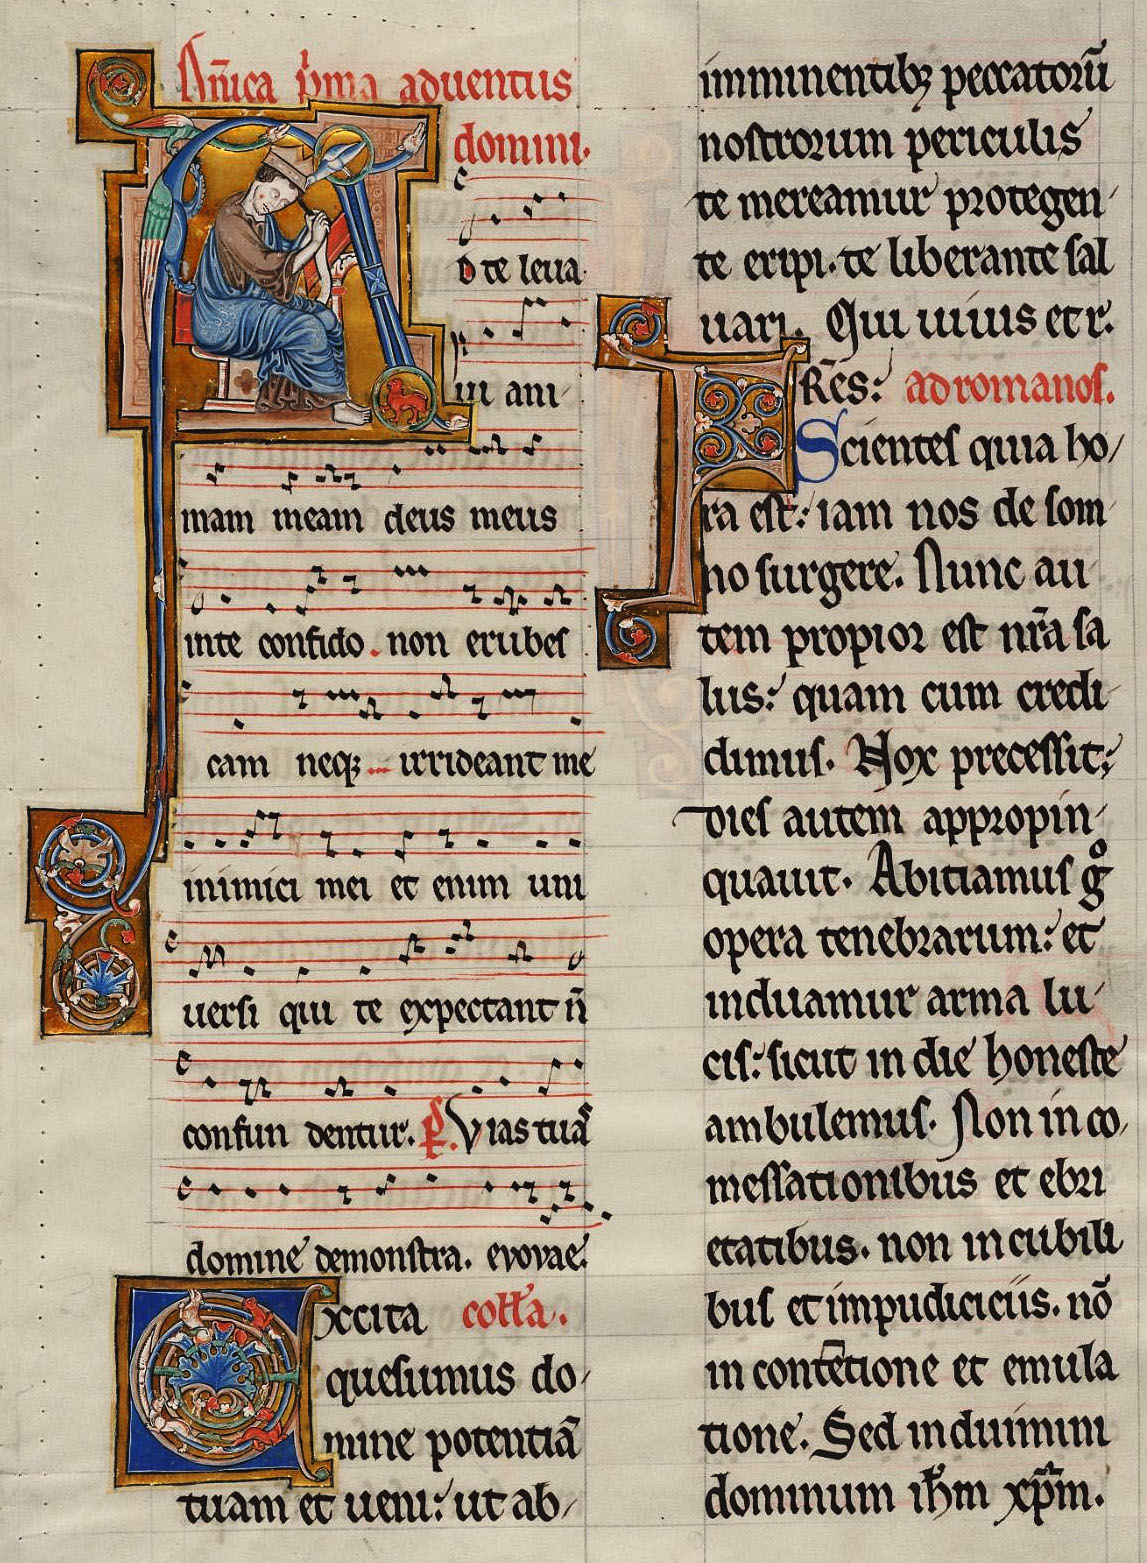 Dn̄ica p̄ma aduentus
domini.
D te leua
ui ani
mam meam deus meus
inte confido. non erubes
cam neqꝫ irrideant me
inimici mei et enim uni
uersi qui te expectant n̄
confun dentur. Ps. Vias tuas
domine demonstra. evovae.
Excita coll̄a.
quesumus do
mine potentiā
tuam et ueni: ut ab
imminentibꝫ peccatorū
nostrorum periculis
te mereamur protegen
te eripi. te liberante sal
uari. Qui uiuis et r.
FRēS: ad romanos.
Scientes quia ho
ra est: iam nos de som
no surgere. Nunc au
tem propior est nr̄a sa
lus: quam cum credi
dimus. Nox precessit;
dies autem appropin
quauit. Abiciamus gͦ
opera tenebrarum: et
induamur arma lu
cis: sicut in die honeste
ambulemus. Non in co
messationibus et ebri
etatibus. non in cubili
bus et impudiciciis. nō
in contētione et emula
tione. Sed induimini
dominum ih̄m xp̄m.